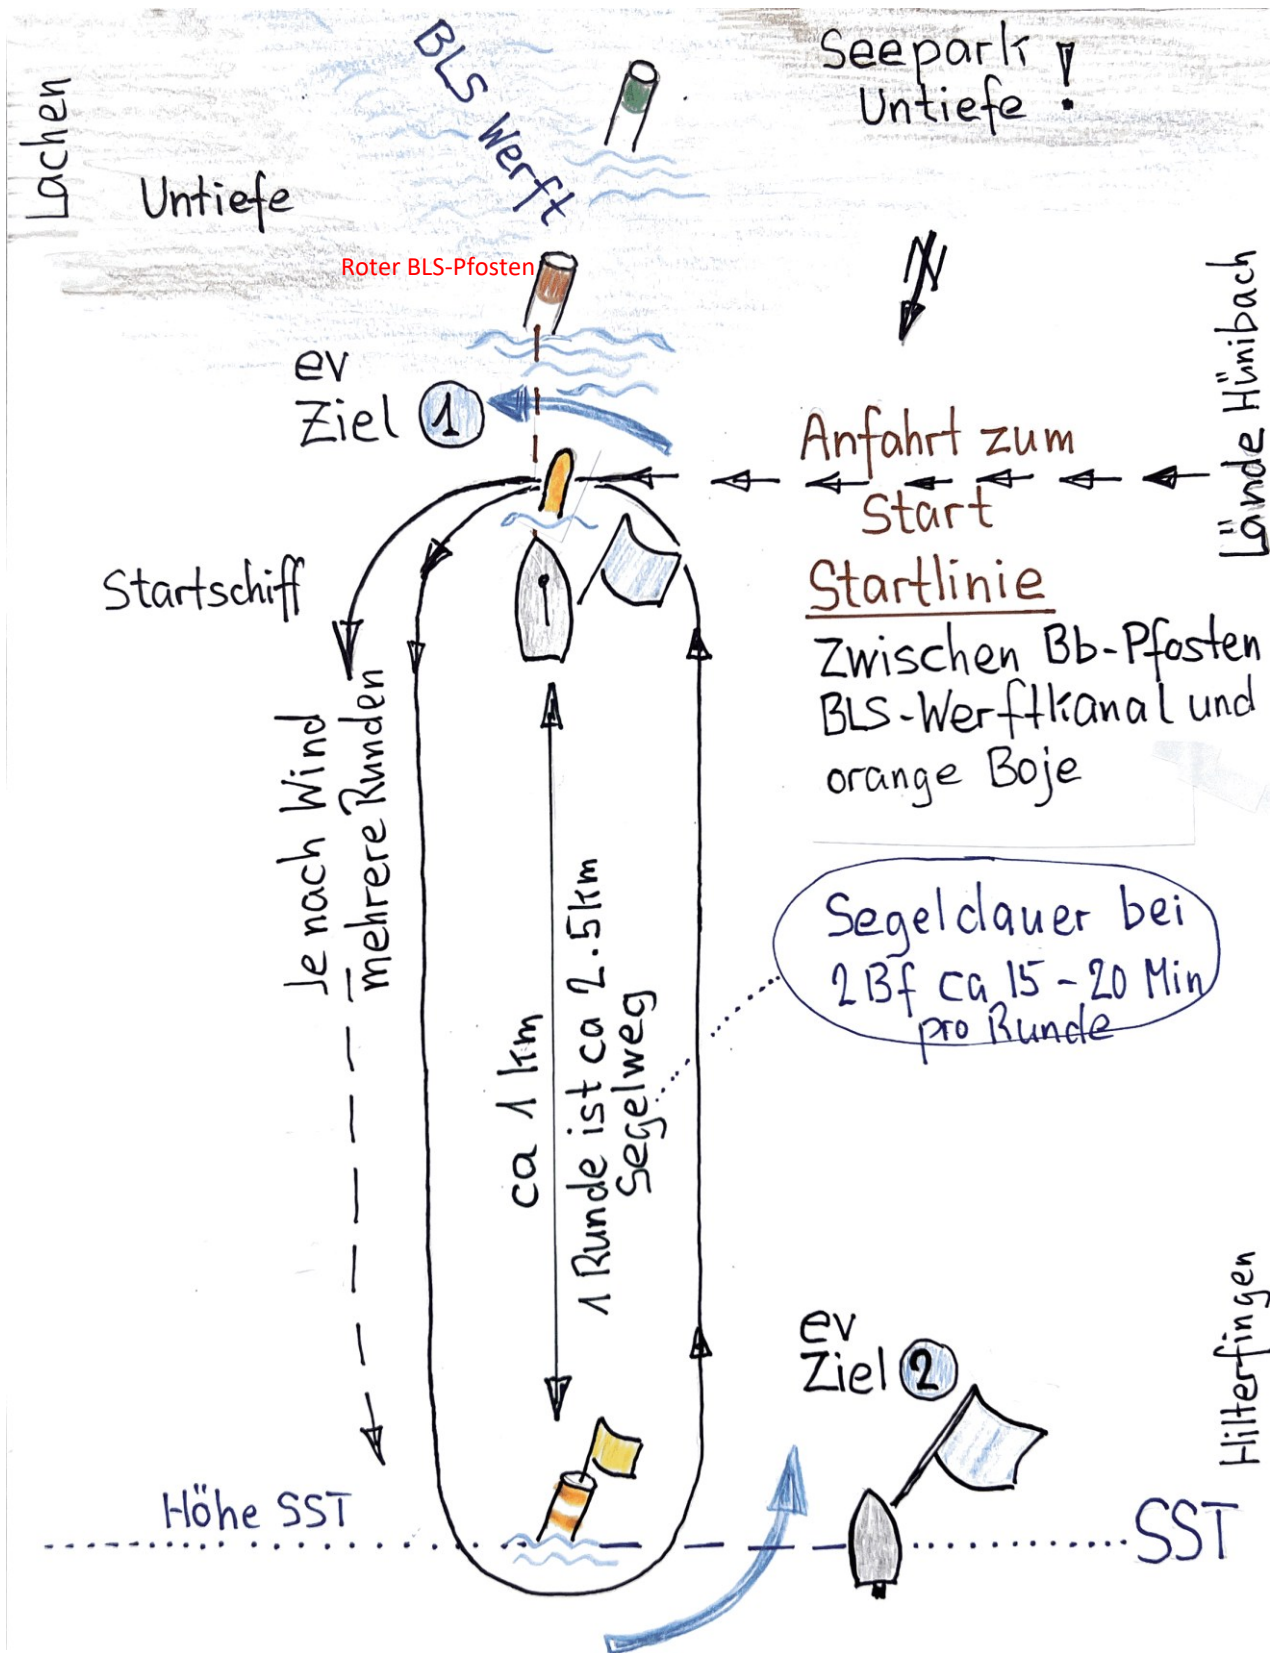 Lachen
BLS Werft
Seepark !
Untiefe
Untiefe
Roter BLS-Pfosten
N
Lände Hünibach
ev
Ziel 1
Anfahrt zum
Start
Startschiff
Startlinie
Zwischen Bb-Pfosten
BLS-Werftkanal und
orange Boje
Je nach Wind
mehrere Runden
ca 1 km
1 Runde ist ca 2.5km
Segelweg
Segeldauer bei
2Bf ca 15-20 Min
pro Runde
ev
Ziel 2
Hilterfingen
Höhe SST
SST